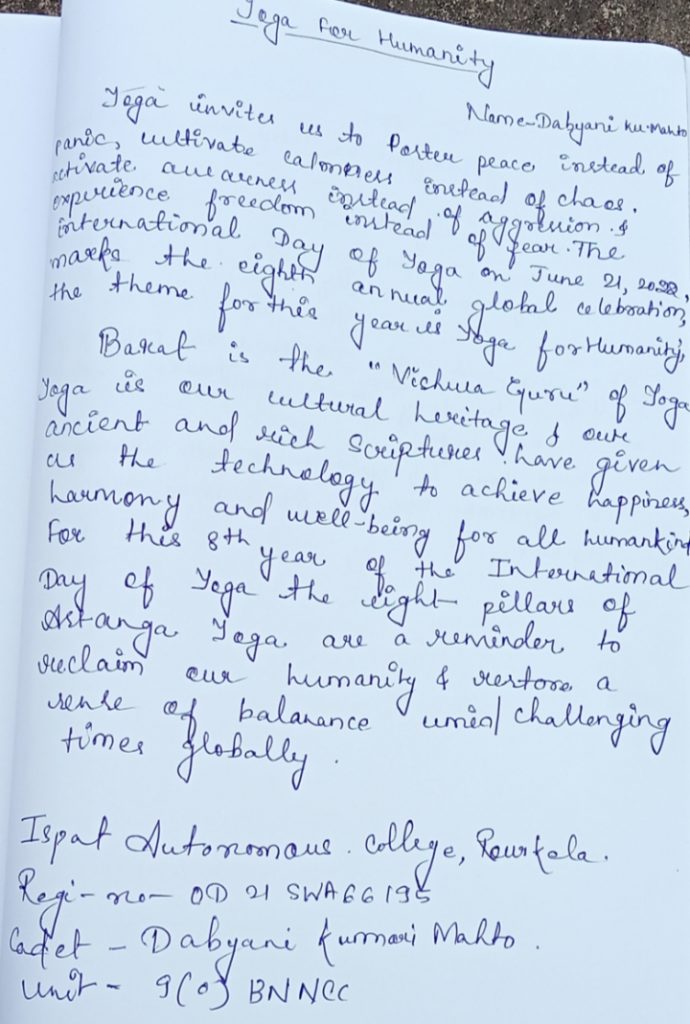 Yoga for Humanity
Name-Dabyani Ku. Mahto
Yoga invites us to Foster peace instead of
panic, cultivate calmness instead of chaos.
activate awareness instead of aggression. &
experience freedom instead of fear. The
international Day of Yoga on June 21, 2022,
marks the eighth annual global celebration,
the theme for this year is Yoga for Humanity,
Barat is the "Vishwa Guru" of Yoga
Yoga is our cultural heritage & our
ancient and rich scriptures have given
us the technology to achieve happiness,
harmony and well-being for all humankind
For this 8th year of the International
Day of Yoga the eight pillars of
Astanga Yoga are a reminder to
reclaim our humanity & restore a
sense of balanance challenging
times globally.
Ispat Autonomous. College, Rourkela.
Regi-no- OD 21 SWA66195
Cadet - Dabyani Kumari Mahto.
Unit - 9(O) BN NCC